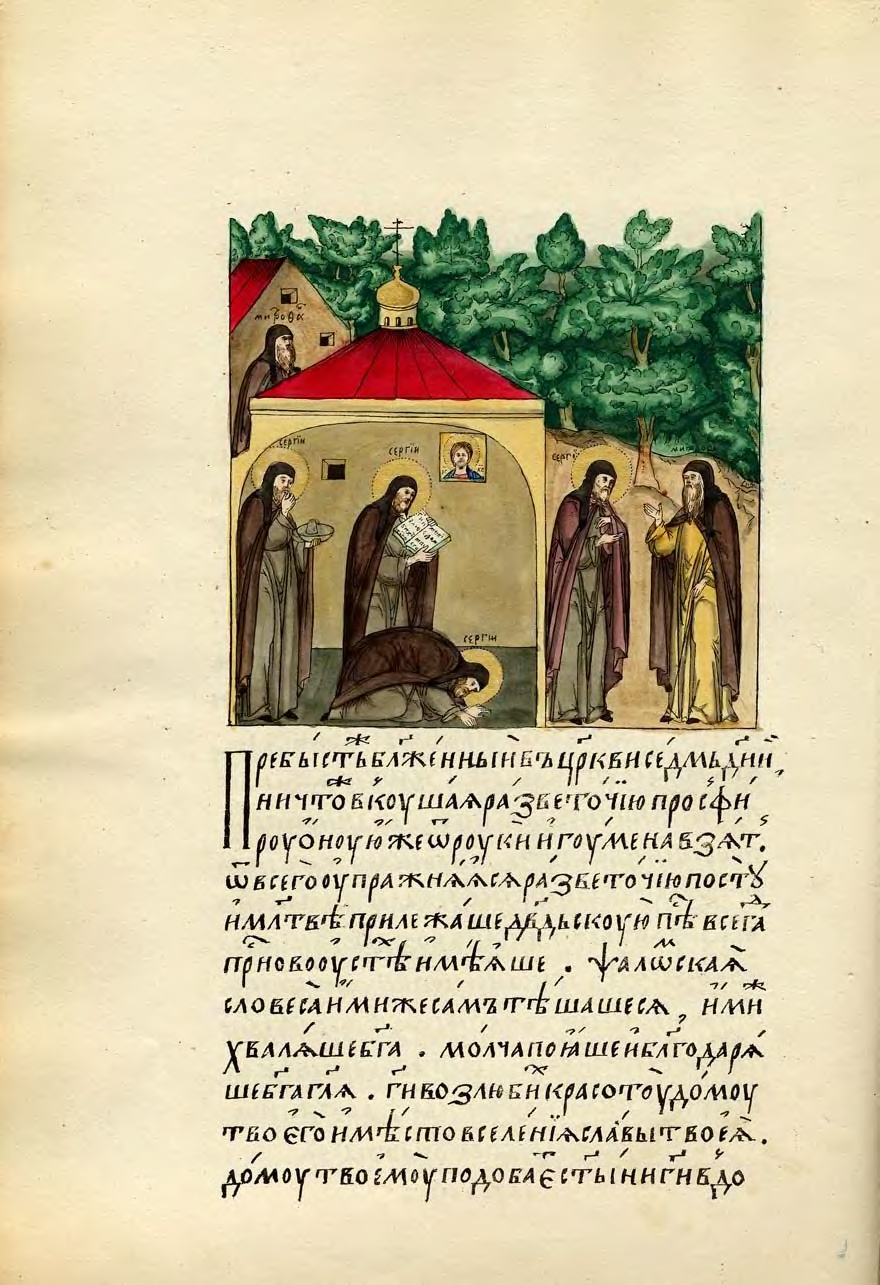 митрофа
сергіи
сергіи
сергі
ми
сергіи
Пребыстьжебл҃женныивъцр҃квиседмьдн҃и,
ничтожевкоушаꙗразветочїюпросфи
роуѡ҃ноуюжеѿроукиигоуменавзѧт.
ѿвсегооупражнѧꙗсѧразветочїюпостꙋ
имл҃твѣприлежашедв҃дьскоуюпѣ всегда
прⷭ҇новооустѣхимѣꙗше . ѱалѡмскаꙗ
словесаимижесамътѣшашесѧ, имиж
хвалѧшебг҃а . молчапоꙗшеиблг҃одарѧ
шебг҃агл҃ѧ . гд҃ивозлюбихкрасотоудомоу
твоєгоимѣстовселенїѧславытвоеѧ .
домоутвоемоуподобаєтст҃ынигд҃ивдо